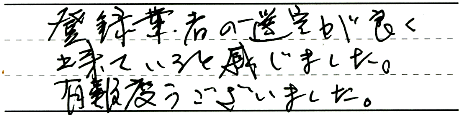 登録業者の選定が良く
出来ていると感じました。
有難度うございました。